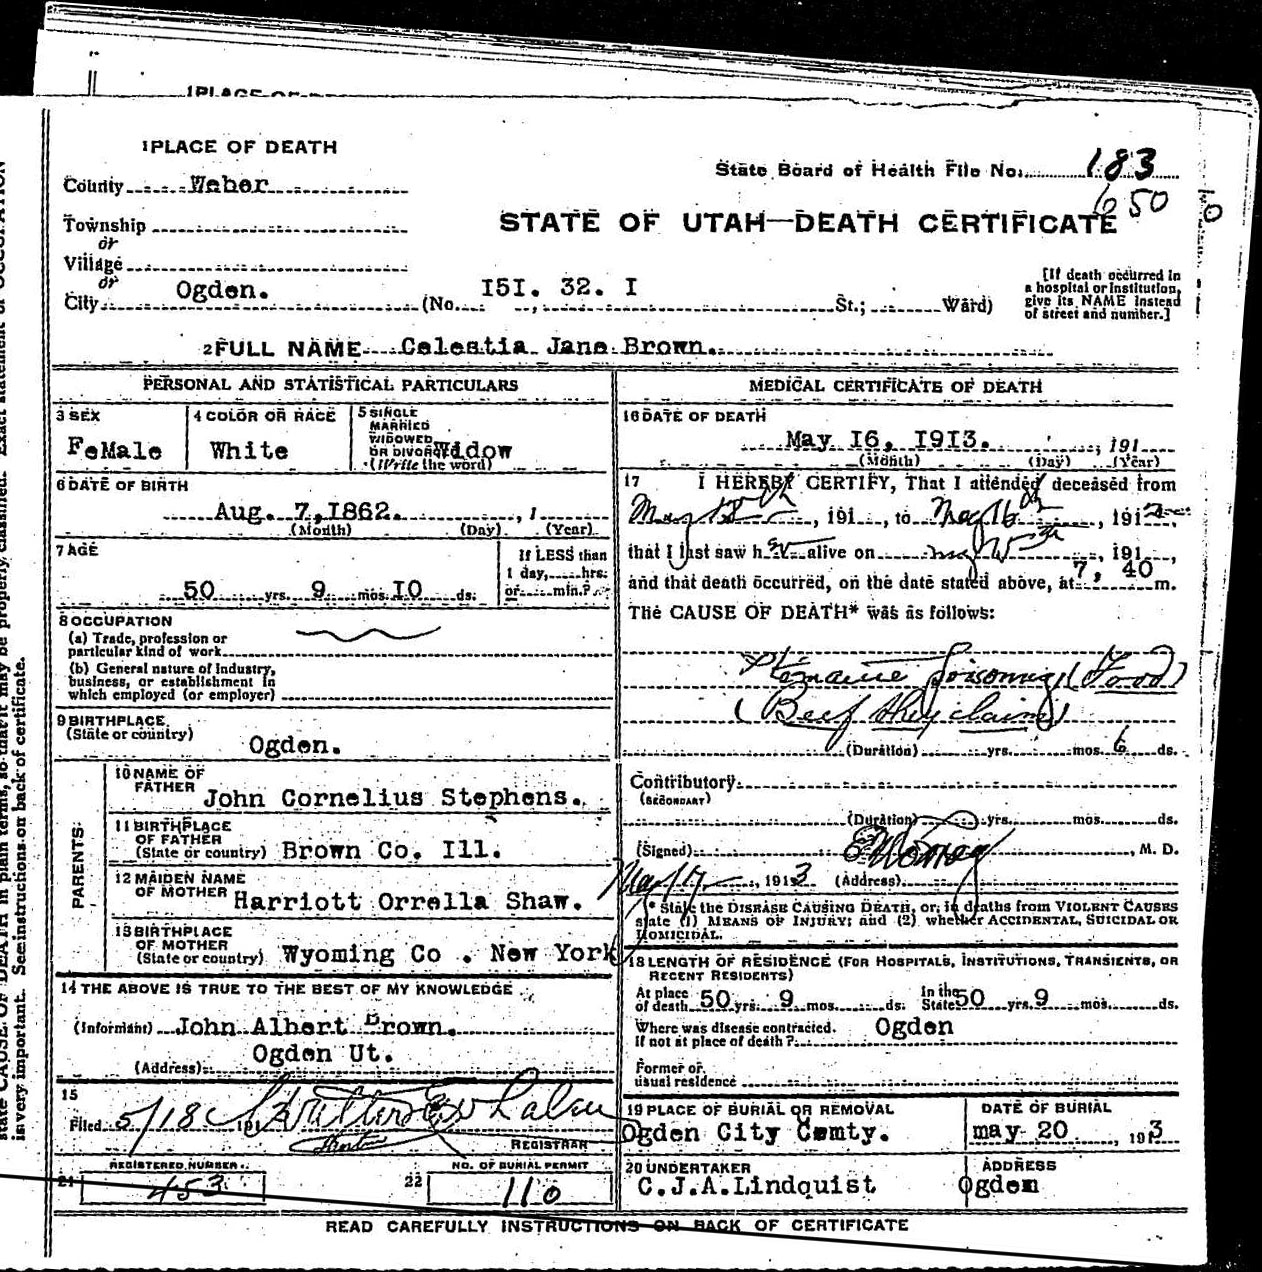 1 PLACE OF DEATH
State Board of Health File No. 183
650
County Weber
STATE OF UTAH—DEATH CERTIFICATE
Township
or
Village
or
City Ogden. (No. I5I. 32. I St.; Ward)
[If death occurred in
a hospital or institution,
give its NAME instead
of street and number.]
2 FULL NAME Celestia Jane Brown.
PERSONAL AND STATISTICAL PARTICULARS
3 SEX
FeMale
4 COLOR OR RACE
White
5 SINGLE
MARRIED
WIDOWED
OR DIVORCED
(Write the word)
Widow
6 DATE OF BIRTH
Aug. 7, 1862. , 1
(Month) (Day) (Year)
7 AGE
50 yrs. 9 mos. I0 ds.
If LESS than
1 day, hrs.
or min.?
8 OCCUPATION
(a) Trade, profession or
particular kind of work
(b) General nature of industry,
business, or establishment in
which employed (or employer)
9 BIRTHPLACE
(State or country)
Ogden.
PARENTS
10 NAME OF
FATHER
John Cornelius Stephens.
11 BIRTHPLACE
OF FATHER
(State or country) Brown Co. Ill.
12 MAIDEN NAME
OF MOTHER Harriott Orrella Shaw.
13 BIRTHPLACE
OF MOTHER
(State or country) Wyoming Co . New York
14 THE ABOVE IS TRUE TO THE BEST OF MY KNOWLEDGE
(Informant) John Albert Brown.
Ogden Ut.
(Address)
15
Filed 5/18 191
REGISTRAR
REGISTERED NUMBER
21 453
NO. OF BURIAL PERMIT
22 110
MEDICAL CERTIFICATE OF DEATH
16 DATE OF DEATH
May I6, I9I3. , 191
(Month) (Day) (Year)
17 I HEREBY CERTIFY, That I attended deceased from
May , 191 , to May 16th , 191
that I last saw her alive on May 15th , 191 ,
and that death occurred, on the date stated above, at 7, 40 m.
The CAUSE OF DEATH* was as follows:
Ptomaine Poisoning (Food)
(Beef they claim)
(Duration) yrs. mos. 6 ds.
Contributory
(SECONDARY)
(Duration) yrs. mos. ds.
(Signed) , M. D.
May 17 , 1913 (Address)
* State the DISEASE CAUSING DEATH, or, in deaths from VIOLENT CAUSES
state (1) MEANS OF INJURY; and (2) whether ACCIDENTAL, SUICIDAL OR
HOMICIDAL.
18 LENGTH OF RESIDENCE (FOR HOSPITALS, INSTITUTIONS, TRANSIENTS, OR
RECENT RESIDENTS)
At place
of death 50 yrs. 9 mos. ds.
In the
State 50 yrs. 9 mos. ds.
Where was disease contracted. Ogden
If not at place of death?
Former or
usual residence
19 PLACE OF BURIAL OR REMOVAL
Ogden City Cemty.
DATE OF BURIAL
may 20 , 1913
20 UNDERTAKER
C.J.A.Lindquist
ADDRESS
Ogden
READ CAREFULLY INSTRUCTIONS ON BACK OF CERTIFICATE
state CAUSE OF DEATH in plain terms, so that it may be properly classified. Exact statement of OCCUPATION
is very important. See instructions on back of certificate.